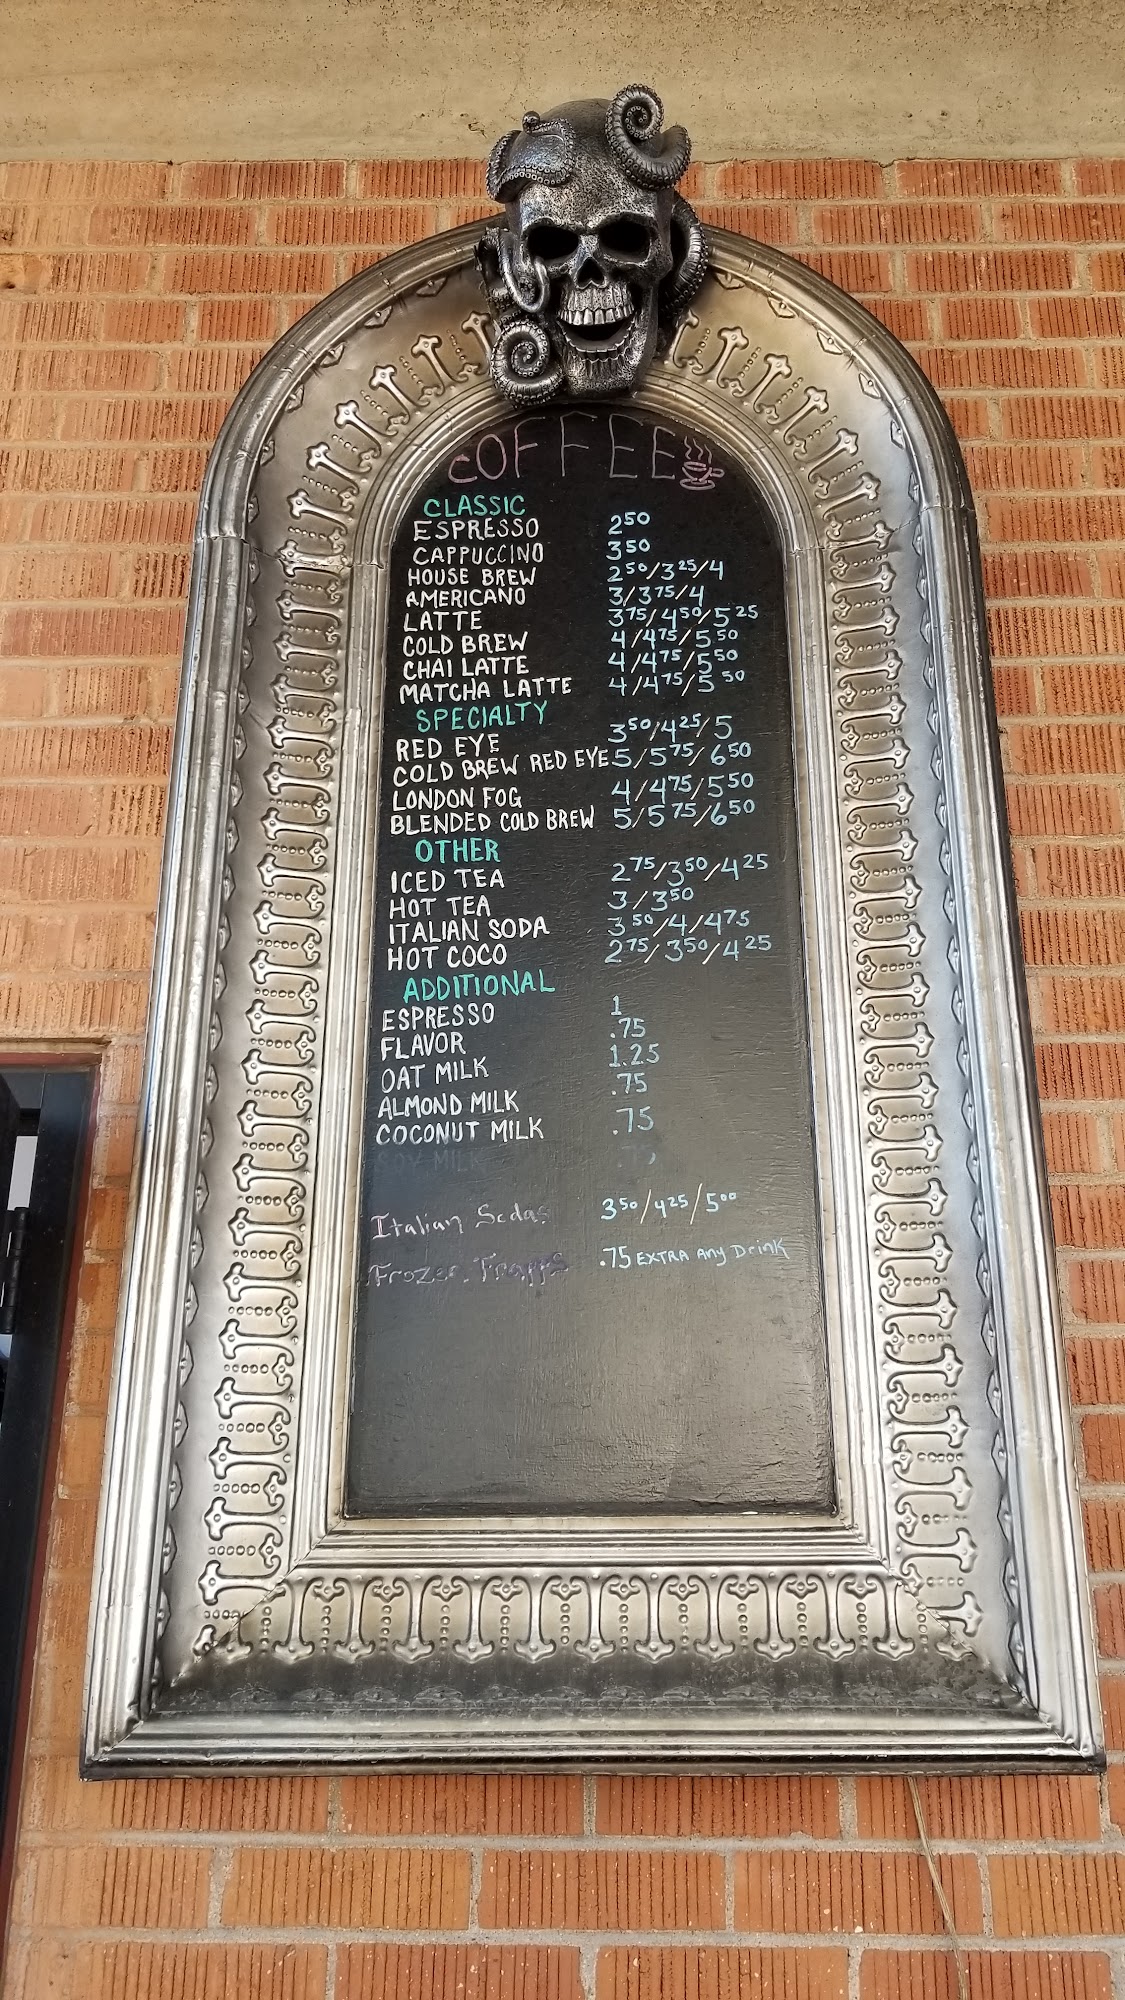 COFFEE
CLASSIC
ESPRESSO 2.50
CAPPUCCINO 3.50
HOUSE BREW 2.50/3.25/4
AMERICANO 3/3.75/4
LATTE 3.75/4.50/5.25
COLD BREW 4/4.75/5.50
CHAI LATTE 4/4.75/5.50
MATCHA LATTE 4/4.75/5.50
SPECIALTY
RED EYE 3.50/4.25/5
COLD BREW RED EYE 5/5.75/6.50
LONDON FOG 4/4.75/5.50
BLENDED COLD BREW 5/5.75/6.50
OTHER
ICED TEA 2.75/3.50/4.25
HOT TEA 3/3.50
ITALIAN SODA 3.50/4/4.75
HOT COCO 2.75/3.50/4.25
ADDITIONAL
ESPRESSO 1
FLAVOR .75
OAT MILK 1.25
ALMOND MILK .75
COCONUT MILK .75
SOY MILK .75
Italian Sodas 3.50/4.25/5.00
Frozen Frapps .75 EXTRA Any Drink